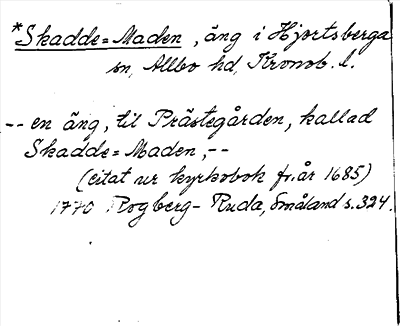 *Skadde=Maden, äng i Hjortsberga
sn, Allbo hd, Kronob. l.
-- en äng, til Prästegården, kallad
Skadde=Maden, --
(citat ur kyrkobok fr. år 1685)
1770 Rogberg-Ruda, Småland s. 324.